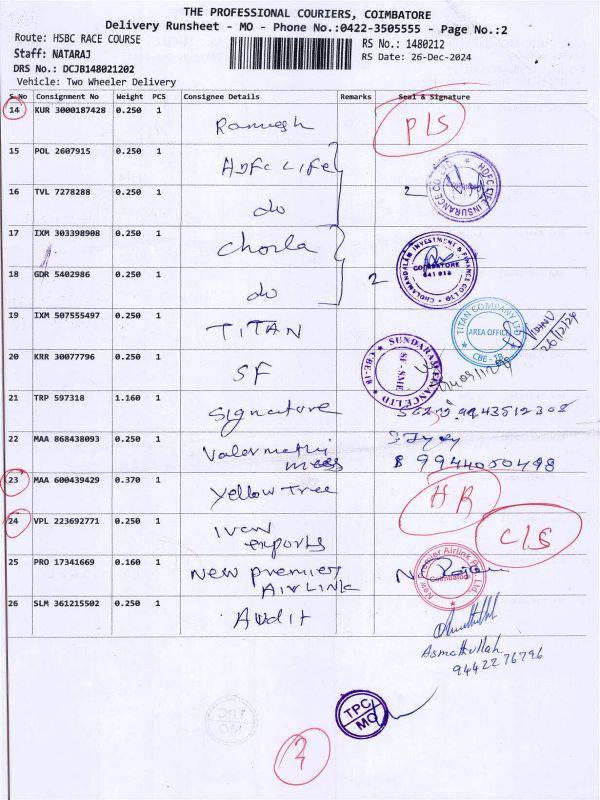 THE PROFESSIONAL COURIERS, COIMBATORE
Delivery Runsheet - MO - Phone No.:0422-3505555 - Page No.:2
Route: HSBC RACE COURSE
RS No.: 1480212
Staff: NATARAJ
RS Date: 26-Dec-2024
DRS No.: DCJB148021202
Vehicle: Two Wheeler Delivery
S.No Consignment No Weight PCS Consignee Details Remarks Seal & Signature
14 KUR 3000187428 0.250 1 Ramesh P/S
15 POL 2607915 0.250 1 HDFC LIFE
HDFC LIFE INSURANCE CO LTD
16 TVL 7278288 0.250 1 do 2
17 IXM 303398908 0.250 1 Chola
CHOLAMANDALAM INVESTMENT & FINANCE CO LTD
COIMBATORE
641 018
18 GDR 5402986 0.250 1 do 2
19 IXM 507555497 0.250 1 TITAN
TITAN COMPANY LTD
AREA OFFICE
CBE - 18
VISHNU
26/12/24
20 KRR 30077796 0.250 1 SF
SUNDARAM FINANCE LTD
SF - SME
CBE-18
21 TRP 597318 1.160 1 Signature 9443512308
22 MAA 868438093 0.250 1 Valarmathi
mess
9944050498
23 MAA 600439429 0.370 1 Yellow Tree HR
24 VPL 223692771 0.250 1 Ivan
exports
C/S
25 PRO 17341669 0.160 1 New premier
AIRLINK
New Premier Airlink Pvt. Ltd.
Coimbatore
26 SLM 361215502 0.250 1 Audit
Asmathullah
9442276796
TPC
MO
TPC
MO